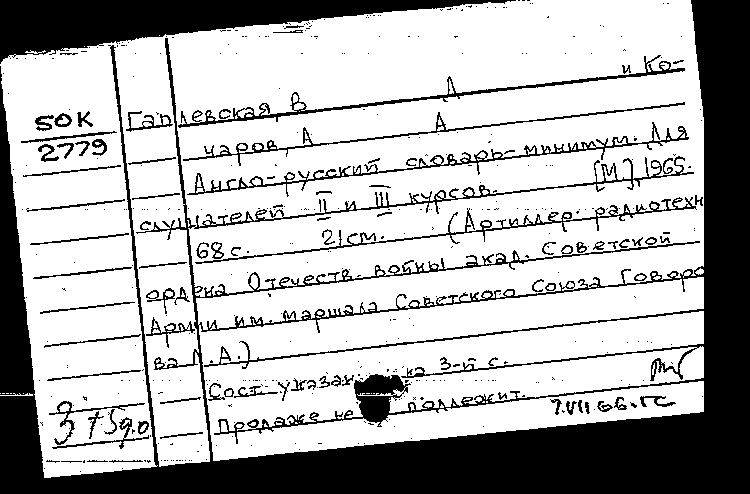 и Ко-
50К Гаплевская, В А
2779 чаров, А А
Англо-русский словарь-минимум. Для
слушателей II и III курсов. [М.], 1965.
68 с. 21 см. (Артиллер. радиотехн
ордена Отечеств. войны акад. Советской
Армии им. маршала Советского Союза Говоро
ва Л.А.).
Сост. указан на 3-й с.
Продаже не подлежит.
7.VII 66.ГС